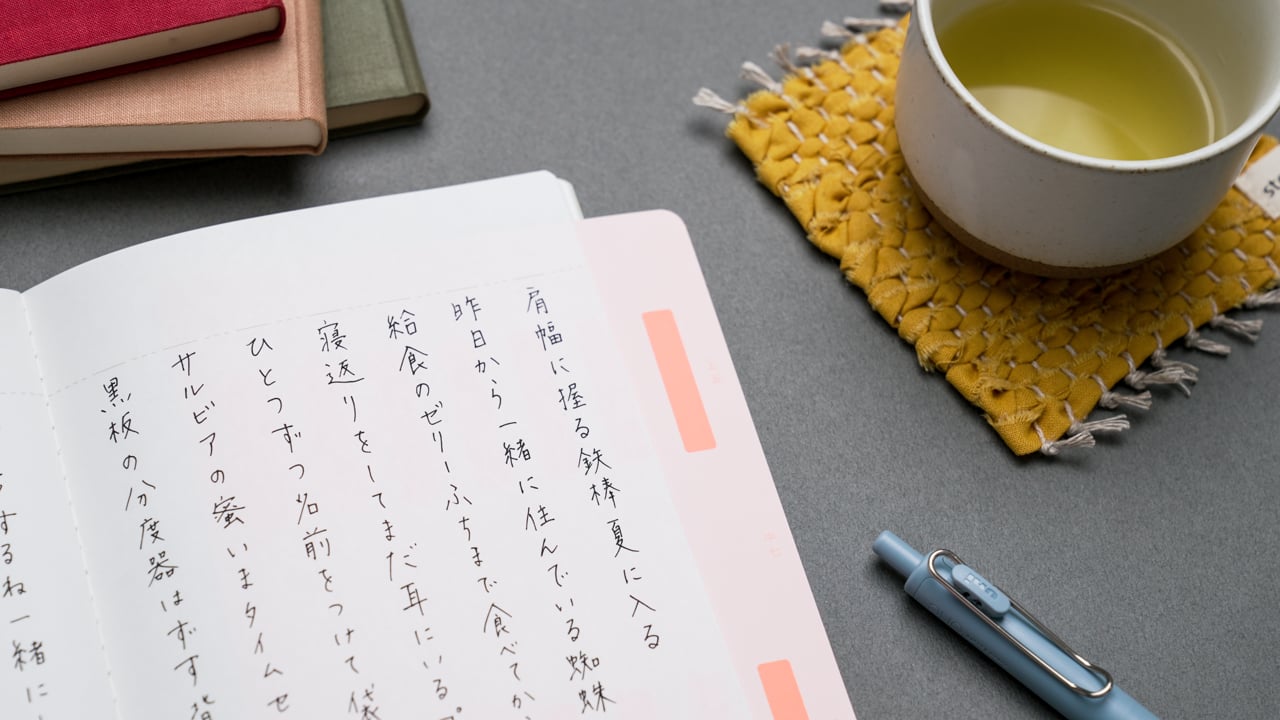 肩幅に握る鉄棒夏に入る
昨日から一緒に住んでいる蜘蛛
給食のゼリーふちまで食べてか
寝返りをしてまだ耳にいる
ひとつずつ名前をつけて袋
サルビアの蜜いまタイムセ
黒板の分度器はずす背
するね一緒に